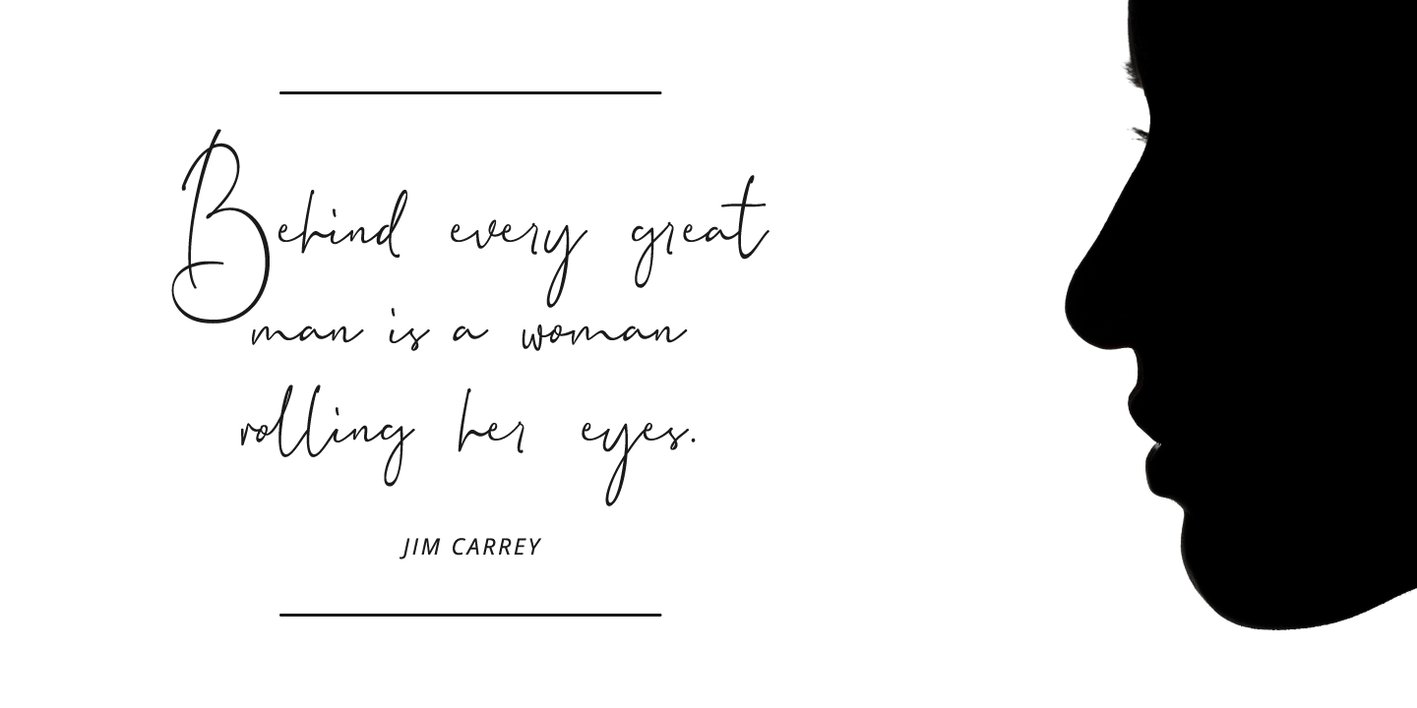 Behind every great
man is a woman
rolling her eyes.
JIM CARREY